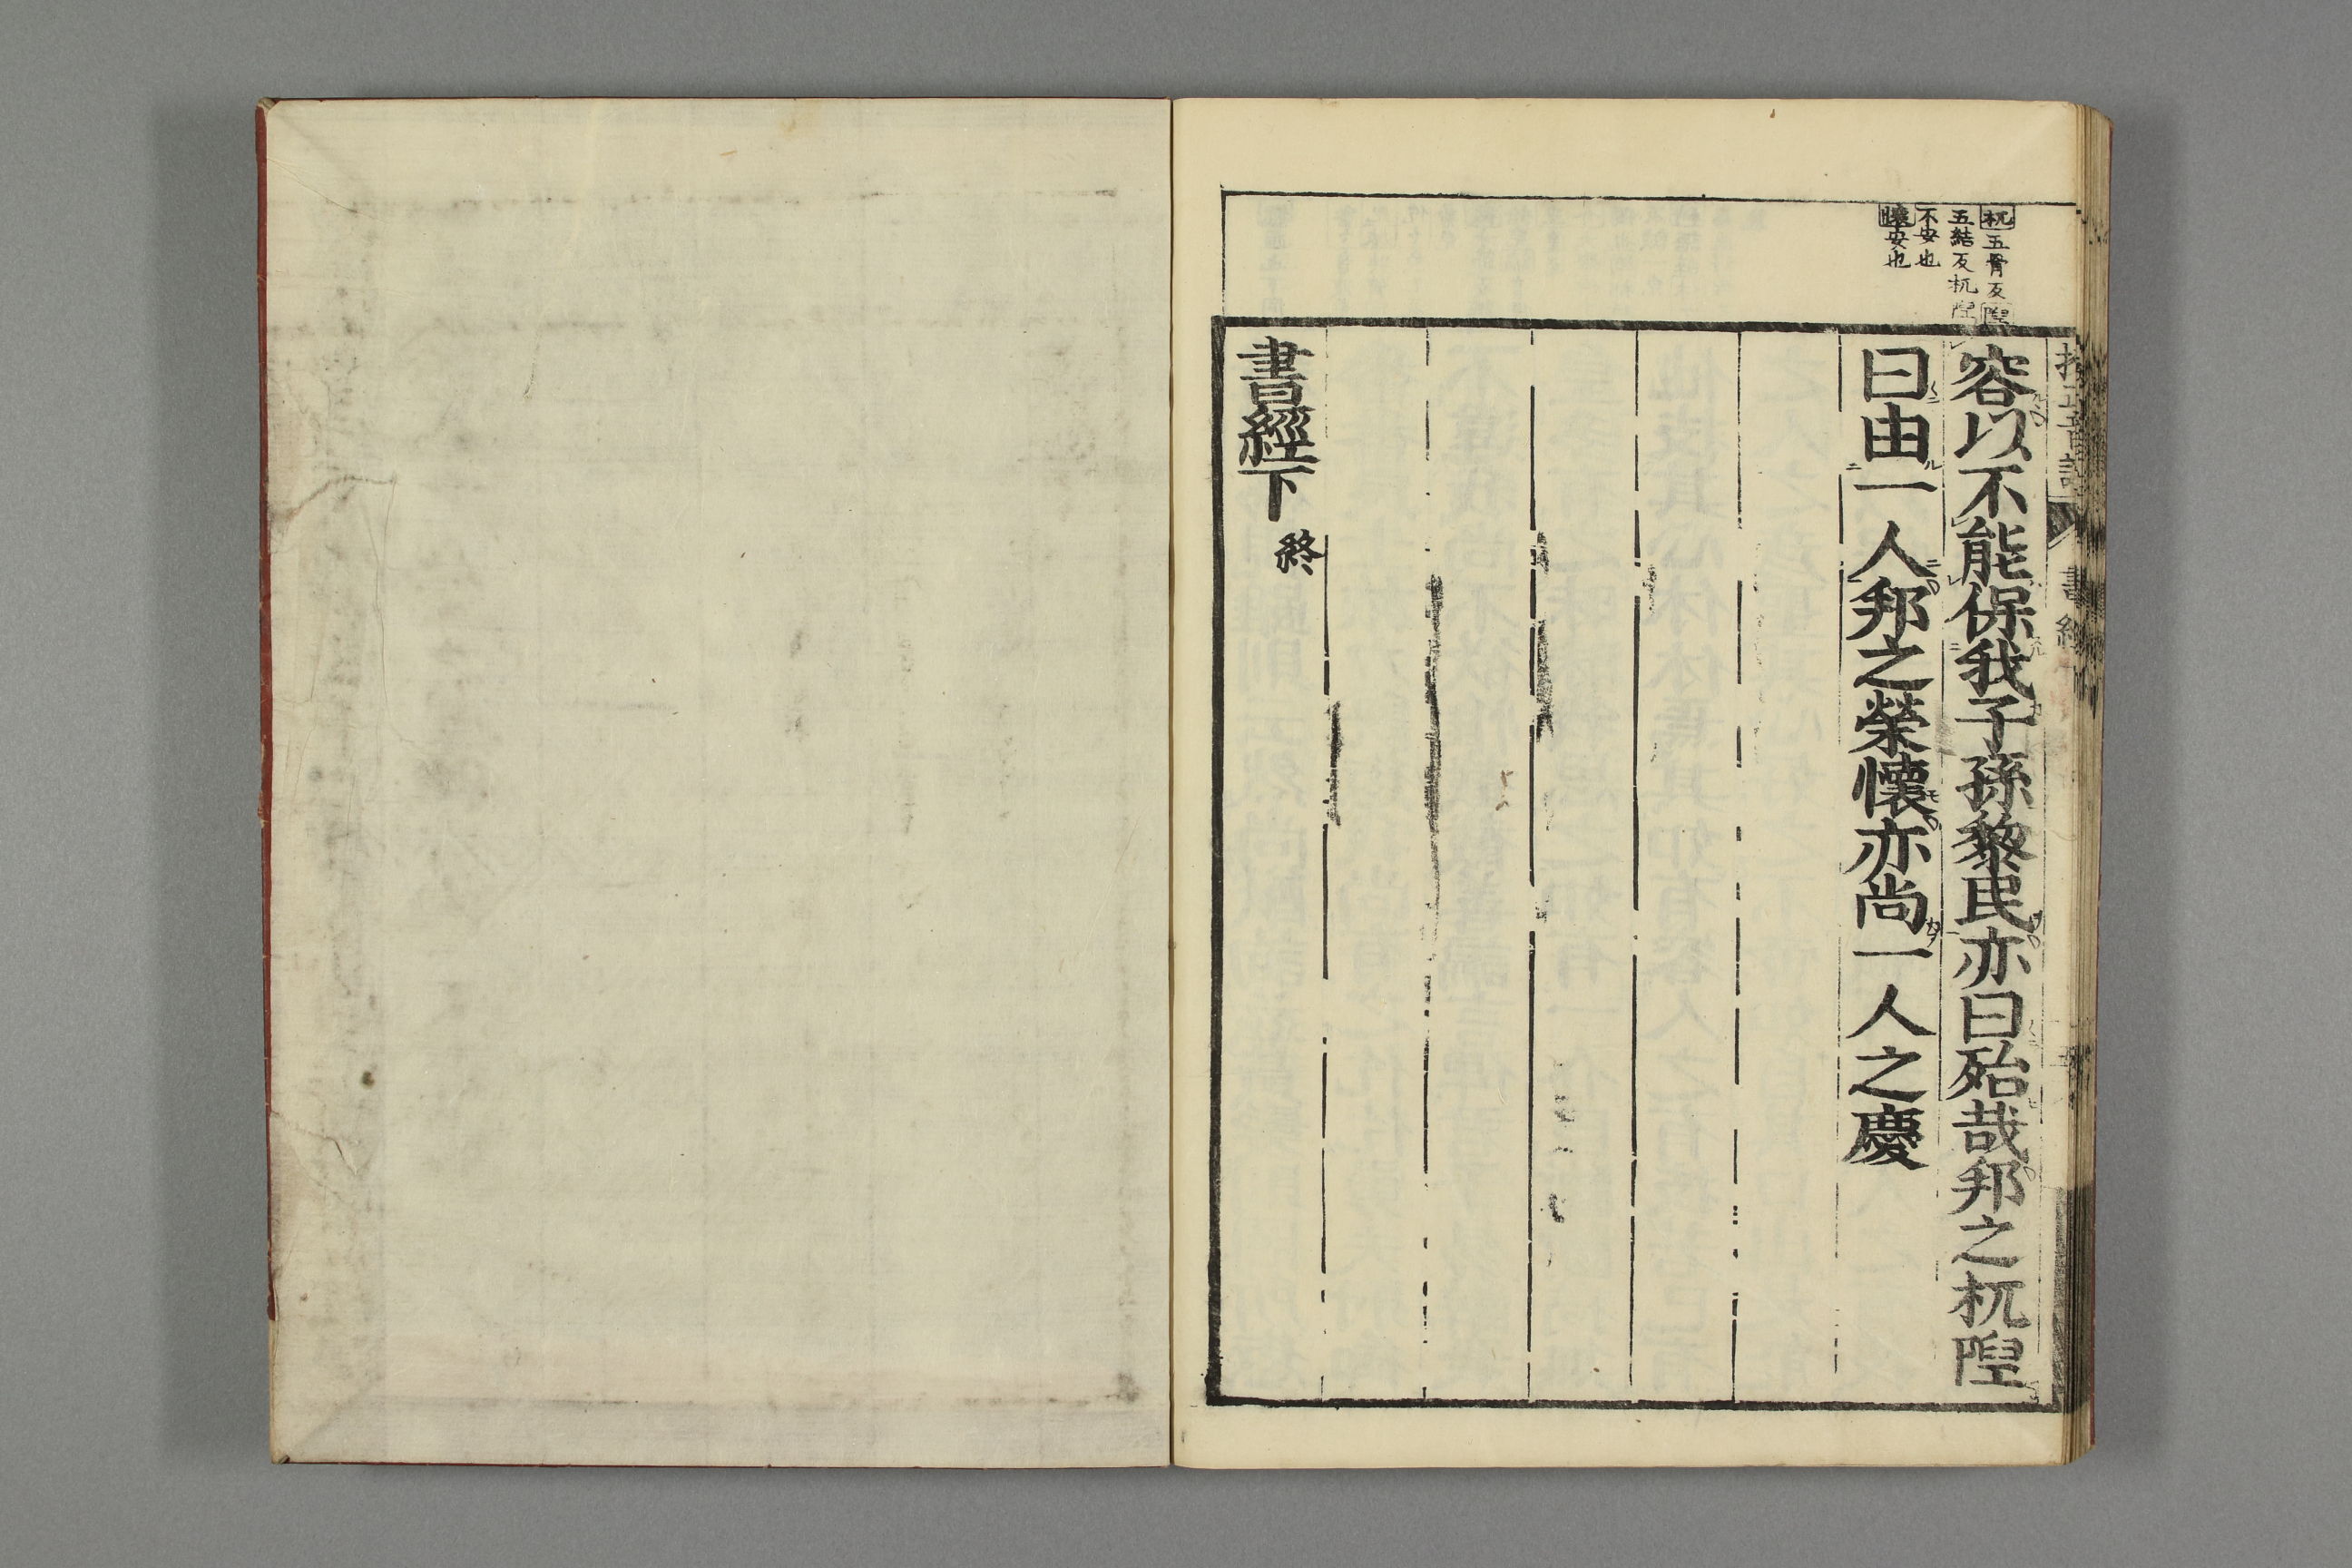 杌五骨反隉
五結反杌隉
不安也
懷安也
書經
容以不能保我子孫黎民亦曰殆哉邦之杌隉
曰由一人邦之榮懷亦尚一人之慶
書經下終